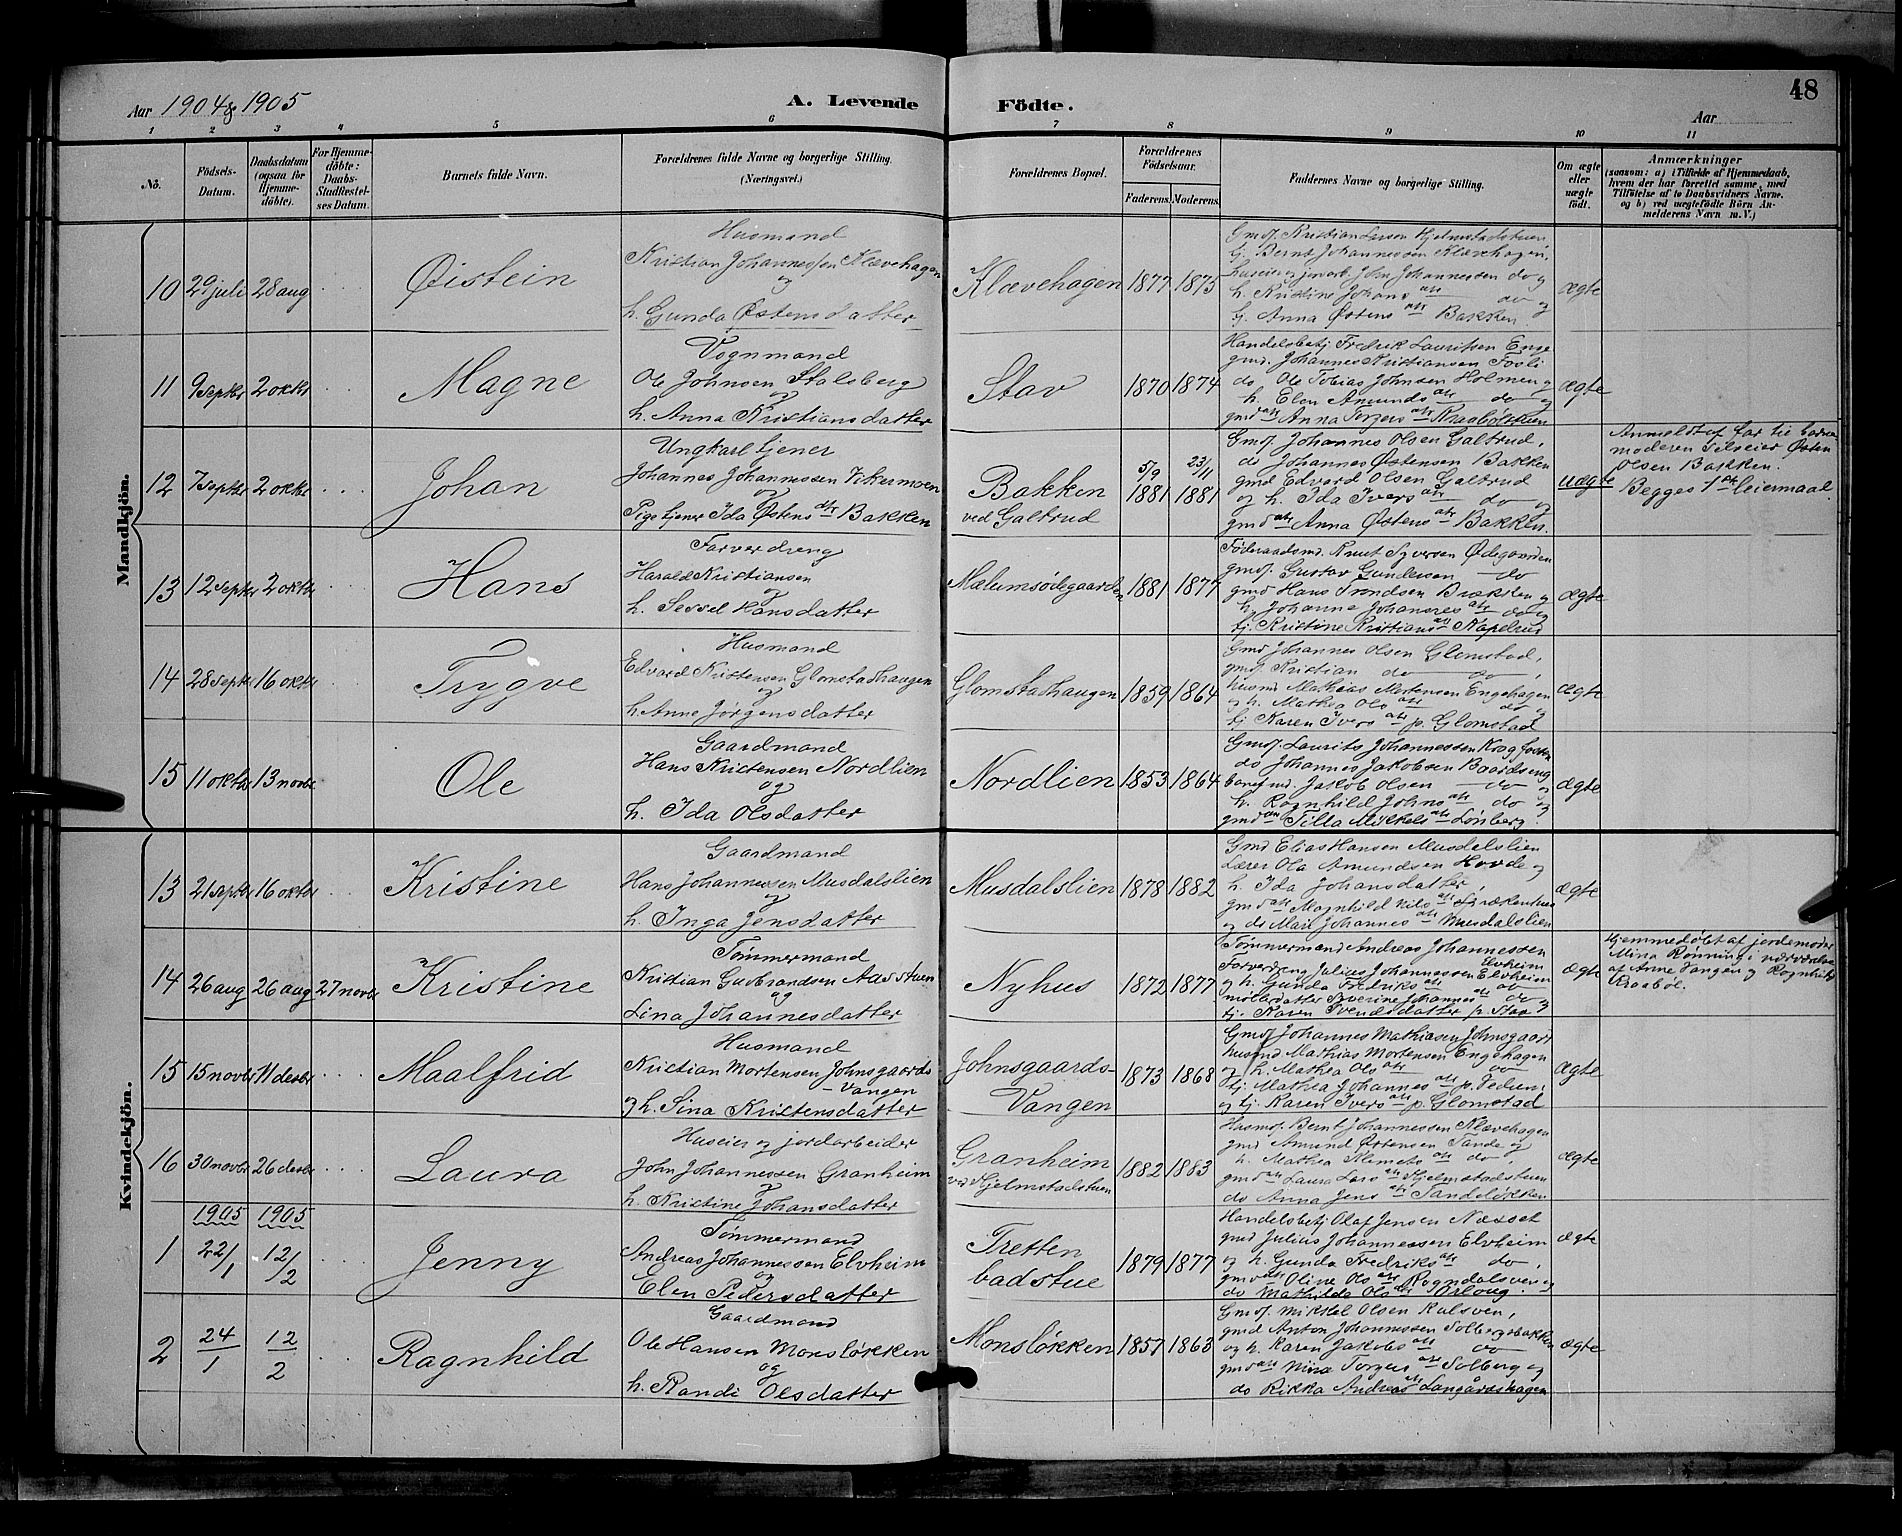 Aar 1904 & 1905
A. Levende
Födte.
48
Aar
1 2 3 4 5 6 7 8 9 10 11
No.
Födsels-Datum.
Daabsdatum (ogsaa for Hjemme-döbte).
For Hjemme-döbte: Daabs-Stadfestel-ses Datum.
Barnets fulde Navn.
Forældrenes fulde Navne og borgerlige Stilling.
(Næringsvei.)
Forældrenes Bopæl.
Forældrenes Födselsaar.
Faderens Moderens
Faddernes Navne og borgerlige Stilling.
Om ægte eller uægte født.
Anmærkninger
(saasom: a) i Tilfælde af Hjemmedaab, hvem der har forrettet samme, med Tilföielse af to Daabsvidners Navne, og b) ved uægtefödte Börn An-melderens Navn m. V.)
Mandkjön.
10 29 juli 28 aug Øistein
Husmand
Kristian Johannessen Klævehagen
og
h. Gunda Østensdatter
Klævehagen 1877 1875
Gmsf. Kristian Larsen Hjelmstadstuen,
tj. Bernt Johannessen Klævehagen,
huseier og jordarb. John Johannessen do og
h. Kristine Johans dtr do og
tj. Anna Østens dtr Bakken.
ægte
11 9 septbr 2 oktbr Magne
Vognmand
Ole Johnsen Stalsberg
og
h. Anna Kristiansdatter
Stav 1870 1874
Handelsbetj Fredrik Lauritsen Enge
gmd. Johannes Kristiansen Fosli
do Ole Tobias Johnsen Holmen og
h. Elen Amunds dtr do og
gmd dtr Anna Torgers dtr Kraabølstuen
ægte
12 7 septbr 2 oktbr Johan
Ungkarl tjener
Johannes Johannessen Vikermoen
og
Pige tjener Ida Østens dtr Bakken
Bakken
ved Galtrud
5/9 1881 23/11 1881
Gmsf. Johannes Olsen Galtrud,
do Johannes Østensen Bakken
gmd Edvard Olsen Galtrud
og h. Ida Ivers dtr do og
gmd dtr Anna Østens dtr Bakken.
uægte
Anmeldt af far til barne-
moderen Selveier Østen
Olsen Bakken.
Begges 1ste leiermaal.
13 12 septbr 2 oktbr Hans
Farverdreng
Harald Kristiansen
og
h. Sessel Hansdatter
Mælumsødegaarden 1881 1877
Føderaadsmd. Knut Syversen Ødegaarden
gmsf. Gustav Gundersen do
gmd Hans Trondsen Brækken og
h. Johanne Johannes dtr do og
tj. Kristine Kristians dtr Kapelrud
ægte
14 28 septbr 16 oktbr Trygve
Husmand
Edvard Kristensen Glomstadhaugen
og
h. Anne Jørgensdatter
Glomstadhaugen 1859 1864
Gmd Johannes Olsen Glomstad,
gmsf. Kristian do do,
husmd Mathias Mortensen Engehagen
og h. Mathea Ols dtr do og
tj. Karen Ivers dtr p. Glomstad
ægte
15 11 oktbr 13 novbr Ole
Gaardmand
Hans Kristensen Nordlien
og
h. Ida Olsdatter
Nordlien 1853 1864
Gmsf. Laurits Johannessen
do Johannes Jakobsen Baardseng
Jakob Olsen do og
h. Ragnhild Johns dtr do og
gmd dtr Tilla Mikkels dtr Lønberg.
ægte
Kvindekjön.
13 21 septbr 16 oktbr Kristine
Gaardmand
Hans Johannessen Musdalslien
og
h. Inga Jensdatter
Musdalslien 1878 1882
Gmd Elias Hansen Musdalslien
Lærer Ola Amundsen Hovde og
h. Ida Johansdatter,
gmd dtr Magnhild Nils dtr
og do Mari Johannes dtr Musdalslien
ægte
14 26 aug 26 aug 27 novbr Kristine
Tømmermand
Kristian Gudbrandsen Aasstuen
og
Lina Johannesdatter
Nyhus 1872 1877
Tømmermand Andreas Johannessen
Elvheim
Farverdreng Julius Johannessen Elvheim
og h. Gunda Fredriks dtr do
møllerdatter Syverine Johannes dtr do og
tj. Karen Svendsdatter p. Stav
ægte
Hjemmedøbt af jordemoder
Mina Rønning i nærværelse
af Anne Vangen og Ragnhild
Kraabøl.
15 15 novbr 11 decbr Maalfrid
Husmand
Kristian Mortensen Johnsgaards-
Vangen
og h. Sina Kristensdatter
Johnsgaards-
Vangen
1873 1868
Gmsf Johannes Mathiasen Johnsgaard
husmd Mathias Mortensen Engehagen
og h. Mathea Ols dtr do
tj. Mathea Johannes dtr p. Pedium
og tj. Karen Ivers dtr p. Glomstad
ægte
16 30 novbr 26 decbr Laura
Huseier og jordarbeider
John Johannessen Granheim
og
h. Kristine Johansdatter
Granheim
ved Hjelmstadstuen
1882 1883
Husmsf. Bernt Johannessen Klævehagen
gmd Amund Østensen Sande og
h. Mathea Klemets dtr do,
gmd dtr Laura Lars dtr Hjelmstadstuen
do Anna Jens dtr Sandeløkken
ægte
1905 1905
1 22/1 12/2 Jenny
Tømmermand
Andreas Johannessen Elvheim
og
Elen Pedersdatter
Tretten
badstue
1879 1877
Handelsbetj Olaf Jensen Næsset
gmd Julius Johannessen Elvheim
og h. Gunda Fredriks dtr do,
gmd dtr Oline Ols dtr Rogndalsveen og
do Mathilde Ols dtrØrlaug.
ægte
2 24/1 12/2 Ragnhild
Gaardmand
Ole Hansen Monsløkken
og
h. Randi Olsdatter
Monsløkken 1857 1863
Gmsf. Mikkel Olsen Kalsven,
gmd Anton Johannessen Solbergsbakken
og h. Karen Jakobs dtr do
gmd dtr Mina Torgers dtr Solberg og
do Rikka Andreas dtr Langaardshagen
ægte